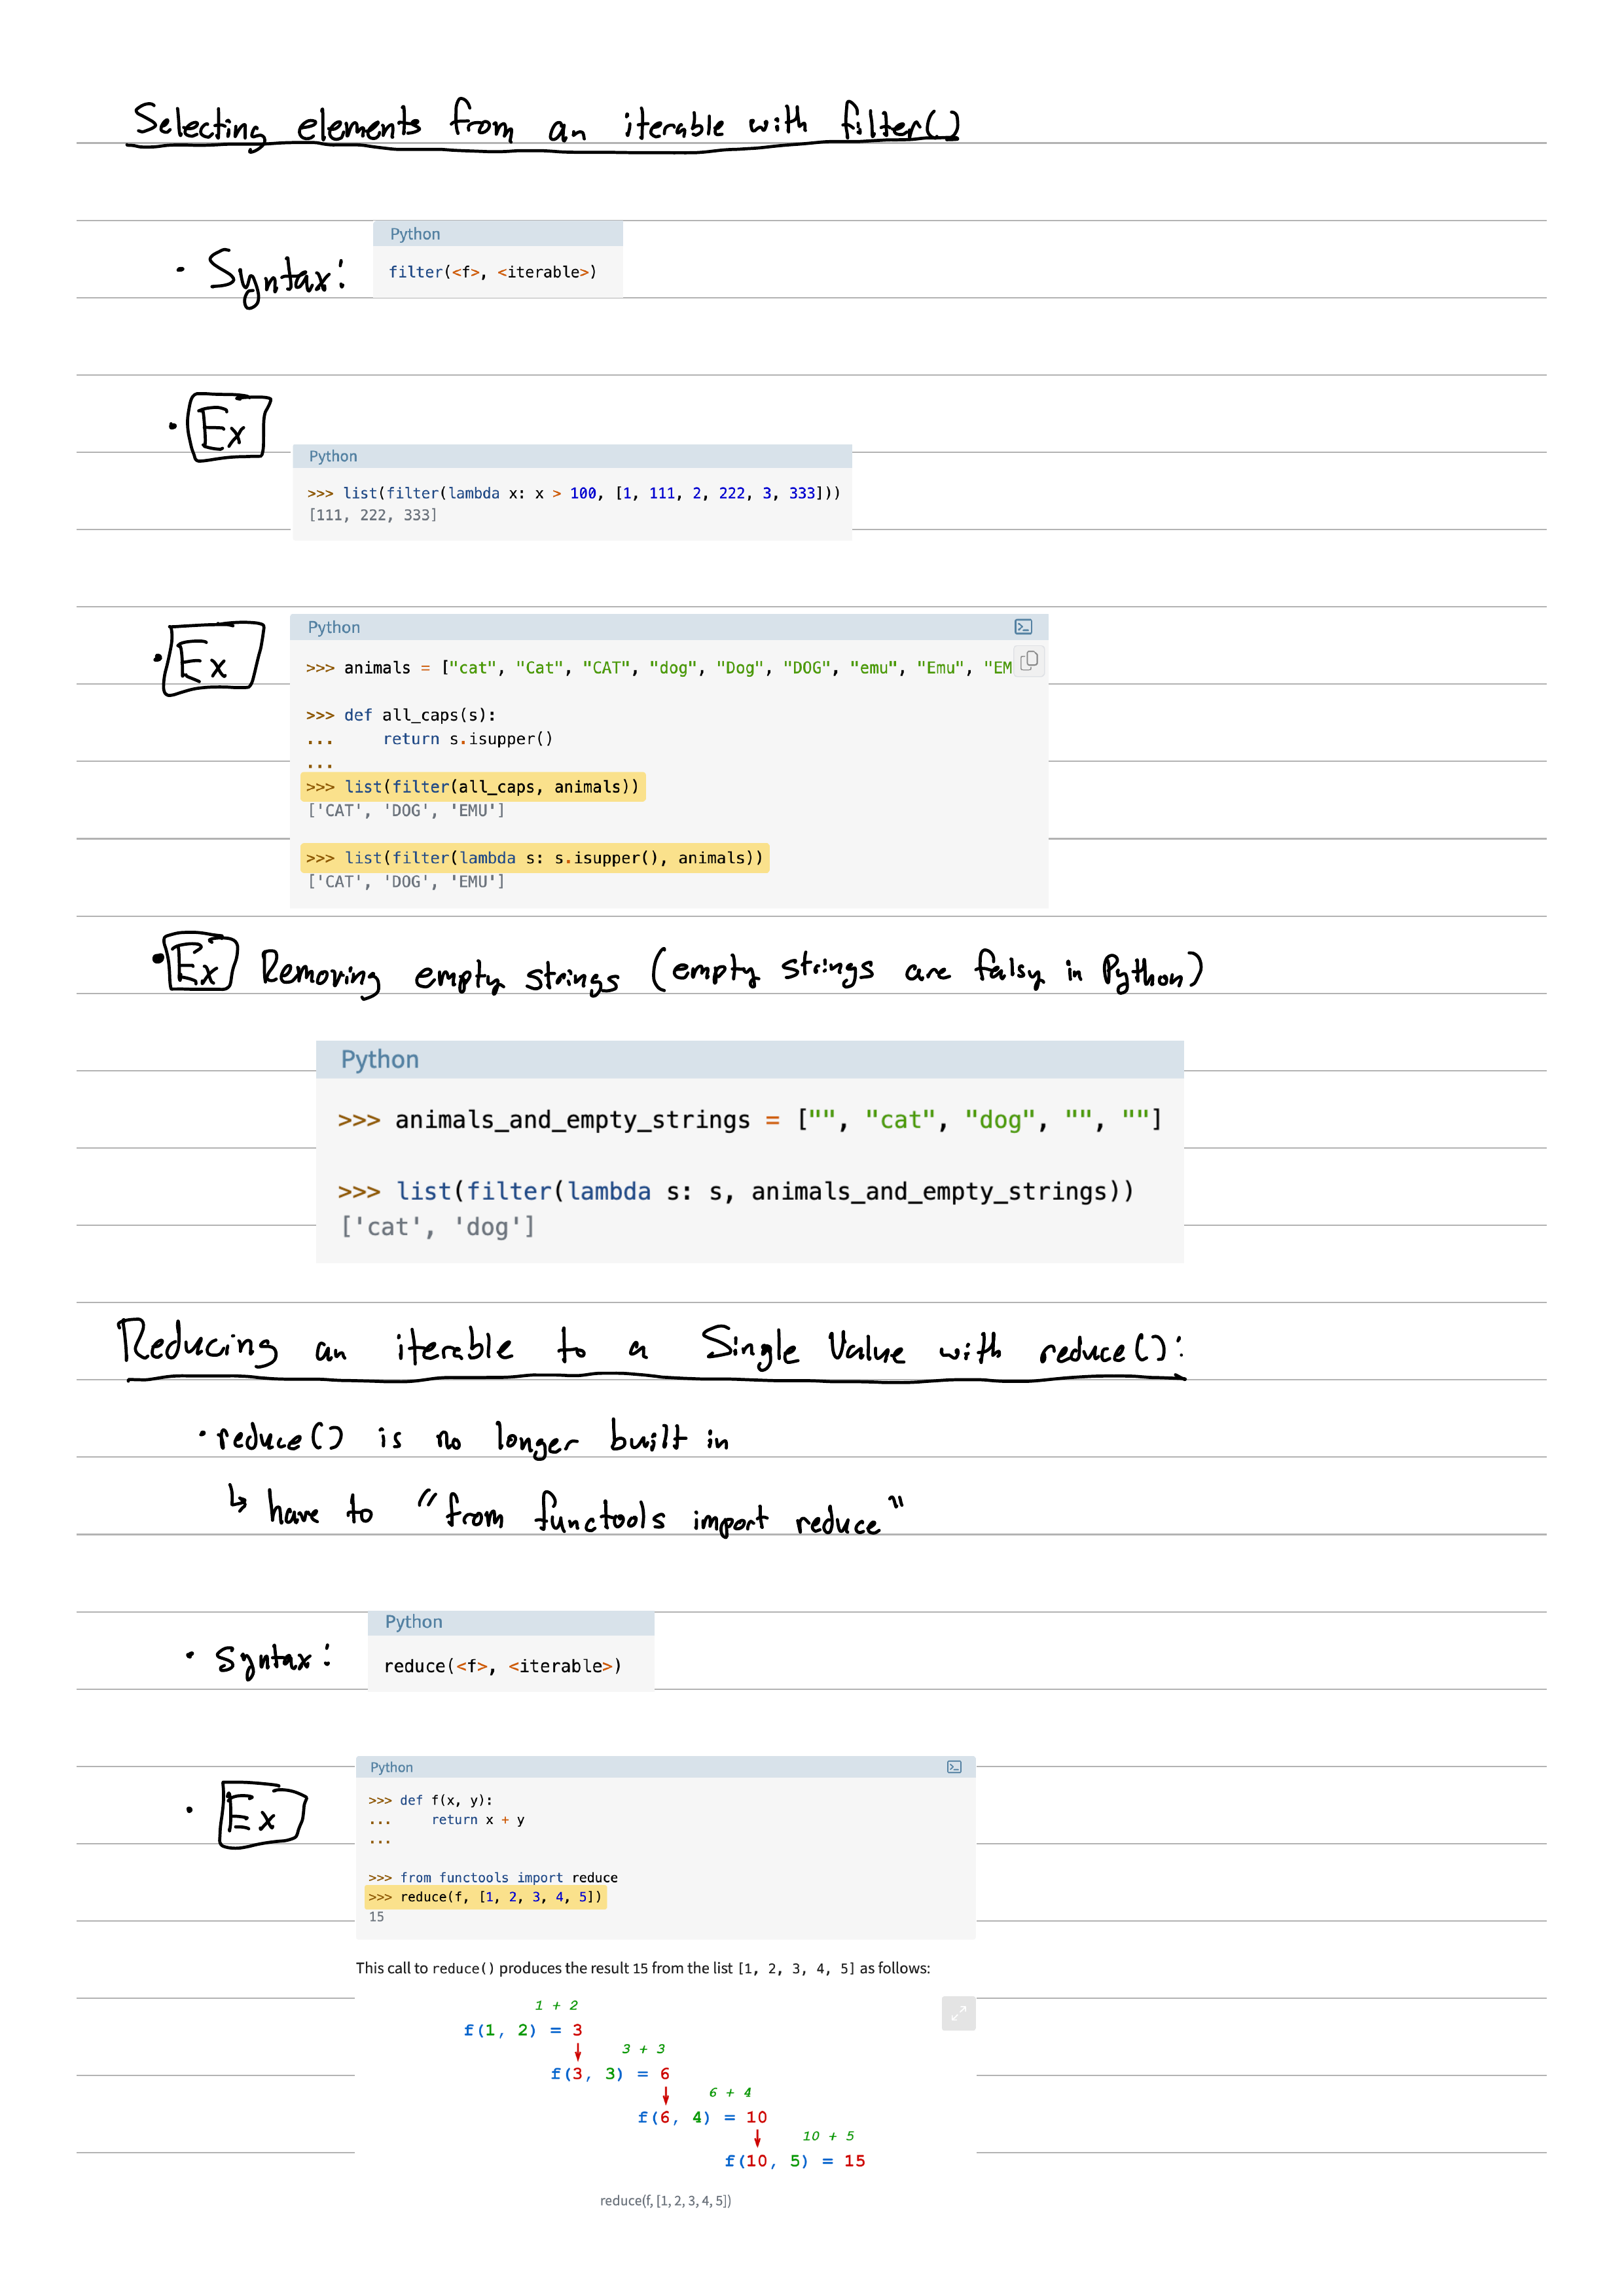 Selecting elements from an iterable with filter()
• Syntax:
Python
filter(<f>, <iterable>)
• Ex
Python
>>> list(filter(lambda x: x > 100, [1, 111, 2, 222, 3, 333]))
[111, 222, 333]
• Ex
Python
>>> animals = ["cat", "Cat", "CAT", "dog", "Dog", "DOG", "emu", "Emu", "EM
>>> def all_caps(s):
...     return s.isupper()
...
>>> list(filter(all_caps, animals))
['CAT', 'DOG', 'EMU']
>>> list(filter(lambda s: s.isupper(), animals))
['CAT', 'DOG', 'EMU']
• Ex Removing empty strings (empty strings are falsy in Python)
Python
>>> animals_and_empty_strings = ["", "cat", "dog", "", ""]
>>> list(filter(lambda s: s, animals_and_empty_strings))
['cat', 'dog']
Reducing an iterable to a Single Value with reduce():
• reduce() is no longer built in
↳ have to "from functools import reduce"
• Syntax:
Python
reduce(<f>, <iterable>)
• Ex
Python
>>> def f(x, y):
...     return x + y
...
>>> from functools import reduce
>>> reduce(f, [1, 2, 3, 4, 5])
15
This call to reduce() produces the result 15 from the list [1, 2, 3, 4, 5] as follows:
1 + 2
f(1, 2) = 3
3 + 3
f(3, 3) = 6
6 + 4
f(6, 4) = 10
10 + 5
f(10, 5) = 15
reduce(f, [1, 2, 3, 4, 5])